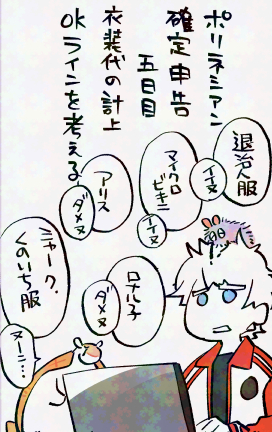 ポリネシアン
確定申告
五日目
衣装代の計上
OKラインを考える
退治人服
イイヌ
マイクロ
ビキニ
イイヌ
アリス
ダメヌ
ロナル子
ダメヌ
ミャーク・
くのいち服
ヌー…